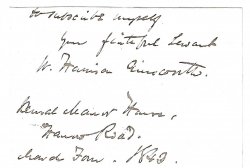 to subscribe myself
Your faithful Servant
W. Harrison Ainsworth.
Kensal Manor House,
Harrow Road.